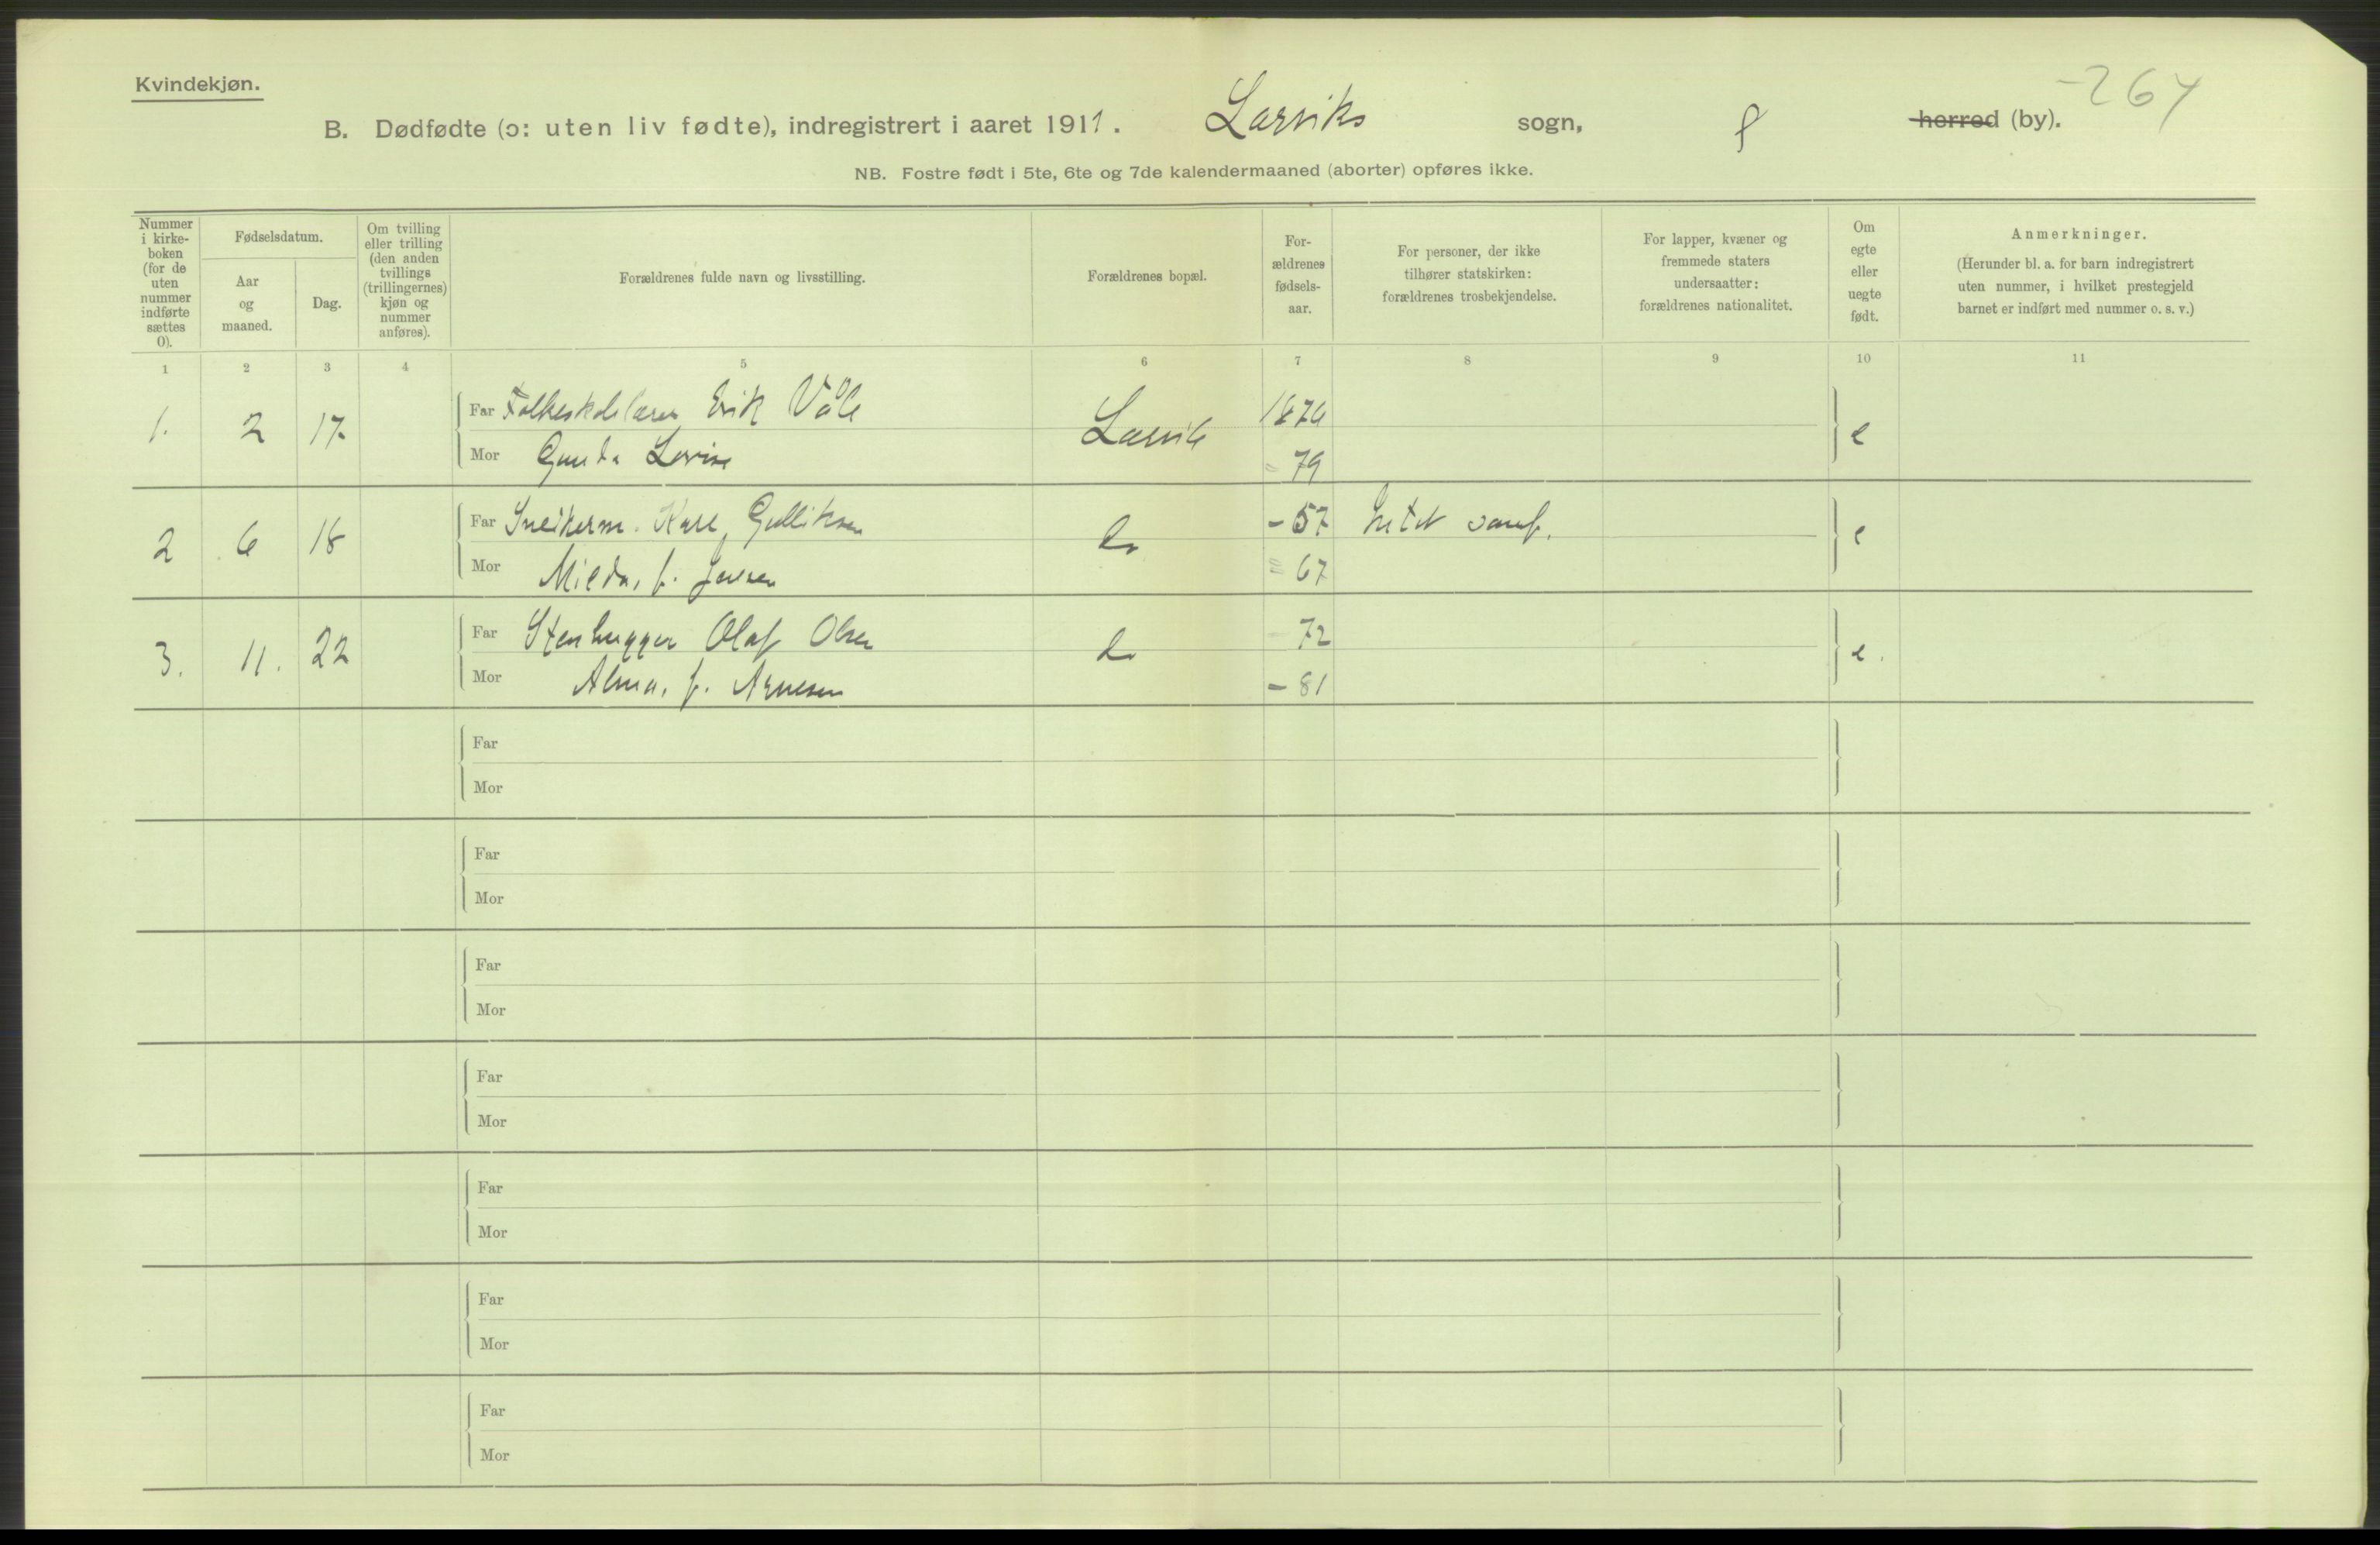 Kvindekjøn.
-264
B. Dødfødte (ɔ: uten liv fødte), indregistrert i aaret 1911. Larviks sogn, herred (by).
NB. Fostre født i 5te, 6te og 7de kalendermaaned (aborter) opføres ikke.
Nummer i kirke-boken (for de uten nummer indførte sættes 0).
Fødselsdatum.
Aar og maaned.
Dag.
Om tvilling eller trilling (den anden tvillings (trillingernes) kjøn og nummer anføres).
Forældrenes fulde navn og livsstilling.
Forældrenes bopæl.
For-ældrenes fødsels-aar.
For personer, der ikke tilhører statskirken: forældrenes trosbekjendelse.
For lapper, kvæner og fremmede staters undersaatter: forældrenes nationalitet.
Om egte eller uegte født.
Anmerkninger.
(Herunder bl. a. for barn indregistrert uten nummer, i hvilket prestegjeld barnet er indført med nummer o. s. v.)
1 2 3 4 5 6 7 8 9 10 11
1. 2 17. Far Folkeskolelærer Erik Våle Larvik 1876 e
Mor Gunda Lovise = 79
2 6 18 Far Snekkerm. Karl Gulliksen do - 57 e
Mor Milda, f. Jensen = 67
3. 11. 22 Far Stenhugger Olaf Olsen do 72 e.
Mor Alma, f. Arnesen - 81
Far
Mor
Far
Mor
Far
Mor
Far
Mor
Far
Mor
Far
Mor
Far
Mor